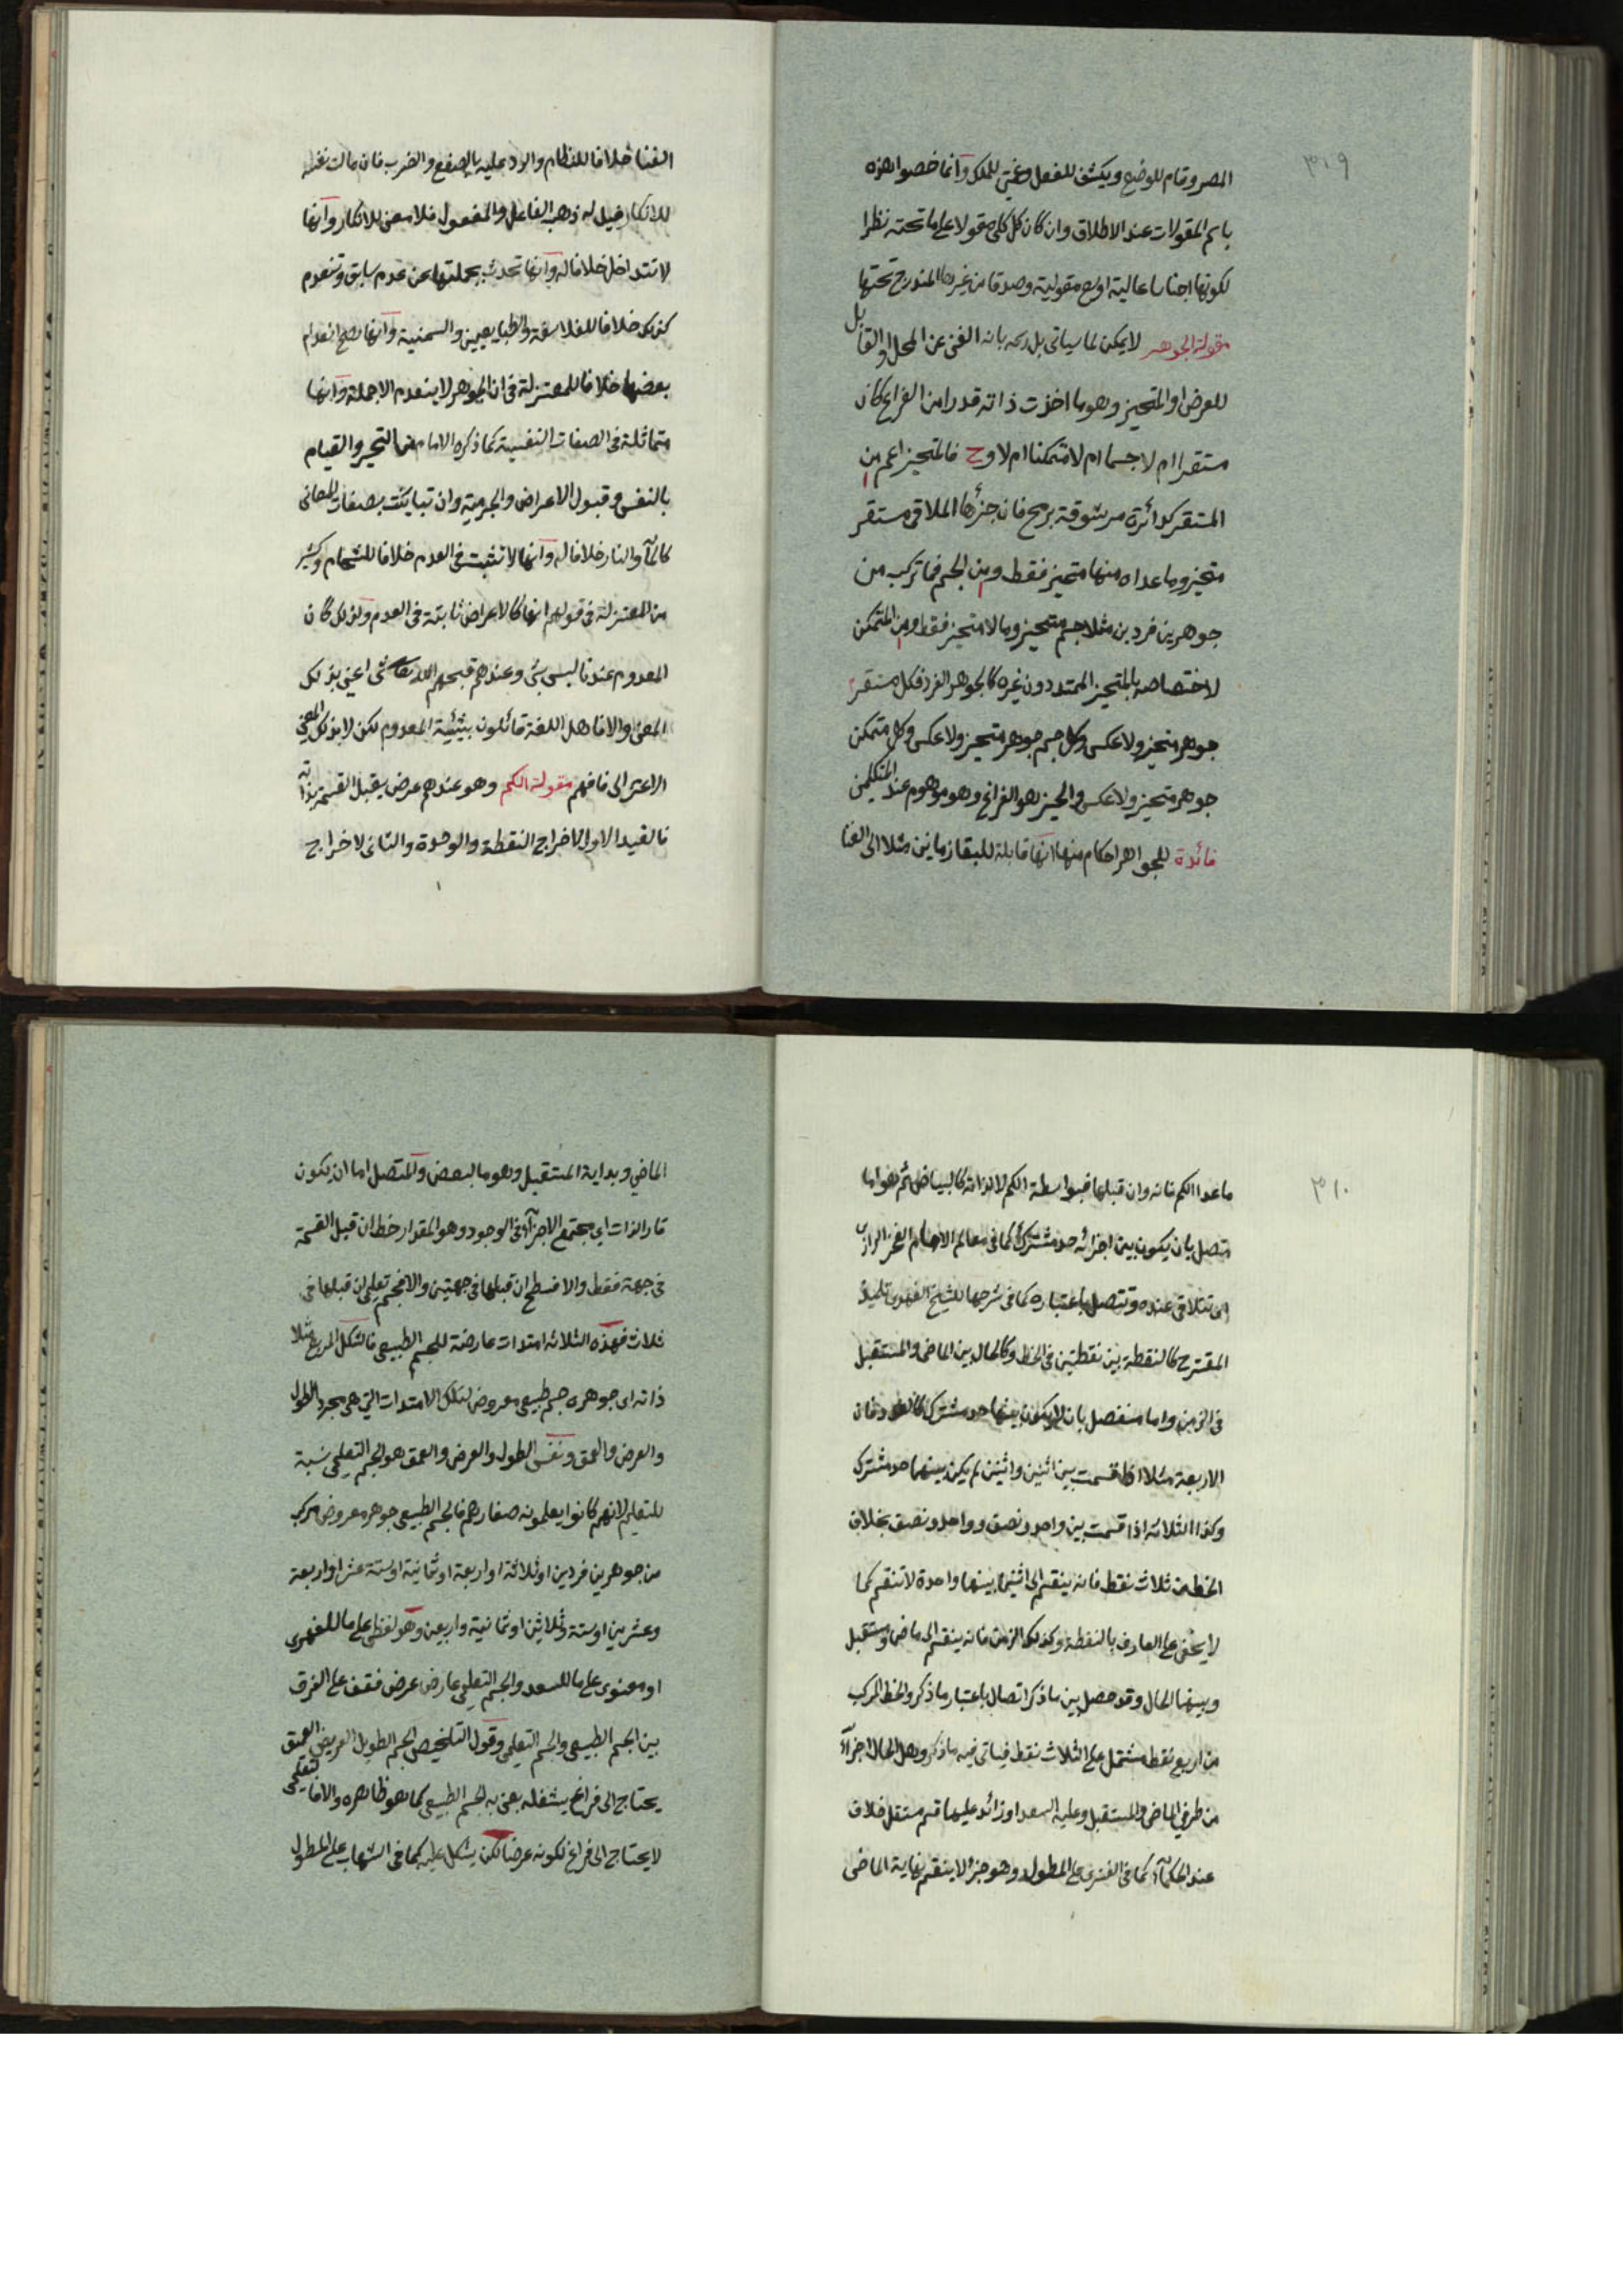 ٣٠٩
المصر وقام للوضع ويكشف للفعل وغنى للملك وآنما خصوا هذه
باسم المقولات عند الاطلاق وان كان كل كلى مقولا على ما تحته نظرا
لكونها اجناسا عالية اوسع مقولية وصدقا من غيرها المندرج تحتها
مقولة الجوهر لا يمكن لما سياتى بل رسمه بانه الغنى عن المحل او القابل
للعرض او المتحيز وهو ما اخذت ذاته قدرا من الفراغ كان
مستقرا ام لا جسما ام لا متمكنا ام لا وح فالمتحيز اعم من
المستقر كدائرة مرشوقة برمح فان جزئها الملاقى مستقر
متحيز وما عداه منها متحيز فقط ومن الجسم فما تركب من
جوهرين فردين مثلا جسم متحيز وما لا متحيز فقط ومن المتمكن
لاختصاصه بالمتحيز الممتد دون غيره كالجوهر الفرد فكل مستقر
جوهر متحيز ولا عكس وكل جسم جوهر متحيز ولا عكس وكل متمكن
جوهر متحيز ولا عكس والحيز هو الفراغ وهو موهوم عند المتكلمين
فائدة للجواهر احكام منها انها قابلة للبقا زمانين مثلا الى الفنا
الفنا خلافا للنظام والرد عليه بالصفع والضرب فان مالت نفسه
للانكار قيل له ذهب الفاعل والمفعول فلا معنى للانكار وآنها
لا تتداخل خلافا له وآنها تحدث بجملتها عن عدم سابق وتنعدم
كذلك خلافا للفلاسفة والطبايعيين والسمنية وآنها يصح انعدام
بعضها خلافا للمعتزلة فى ان الجوهر لا ينعدم الا جملة وآنها
متماثلة فى الصفات النفسية كما ذكره الامام من التحيز والقيام
بالنفس وقبول الاعراض والجرمية وان تباينت بصفات المعانى
كالمآ والنار خلافا له وآنها لا تثبت فى العدم خلافا للشحام وكثير
من المعتزلة فى قولهم انها كالاعراض ثابتة فى العدم ولذلك كان
المعدوم عندنا ليس بشئ وعندهم قبحهم الله تعالى شئ اعني بذلك
المعنى والا فاهل اللغة قائلون بشيئية المعدوم لكن لا بذلك المعنى
الاعتزالى فافهم مقولة الكم وهو عندهم عرض يقبل القسمة بذاته
فالقيد الاول لاخراج النقطة والوحدة والثانى لاخراج
٣١٠
ما عدا الكم فانه وان قبلها فبواسطة الكم لا لذاته كالبياض ثم هو اما
متصل بان يكون بين اجزائه حد مشترك كما فى معالم الامام الفخر الرازى
اى تتلاقى عنده وتتصل باعتباره كما فى شرحها للشيخ الفهرى تلميذ
المقترح كالنقطة بين نقطتين فى الخط وكالحال بين الماضى والمستقبل
فى الزمن واما منفصل بان لا يكون بينها حد مشترك كالعدد فان
الاربعة مثلا اذا قسمت بين اثنين واثنين لم يكن بينهما حد مشترك
وكذا الثلاثة اذا قسمت بين واحد ونصف وواحد ونصف بخلاف
الخط من ثلاث نقط فانه ينقسم الى اثنين بينهما واحدة لا تنقسم كما
لا يخفى على العارف بالنقطة وكذلك الزمن فانه ينقسم الى ماض ومستقبل
وبينهما الحال وقد حصل بين ما ذكر اتصال باعتبار ما ذكر والخط المركب
من اربع نقط مشتمل على الثلاث نقط فياتى فيه ما ذكر وهل الحال اجزآء
من طرفي الماضى والمستقبل وعليه السعد او زائد عليهما قسم مستقل خلاف
عند الحكمآء كما فى الفنرى على المطول وهو جزء لا ينقسم نهاية الماضى
الماضي وبداية المستقبل وهو ما لبعض والمتصل اما ان يكون
قار الذات اي مجتمع الاجزآء فى الوجود وهو المقدار خط ان قبل القسمة
فى جهة فقط والا فسطح ان قبلها فى جهتين والا فجسم تعليمى ان قبلها فى
ثلاث فهذه الثلاثه امتدات عارضة للجسم الطبيعى فالشكل المربع مثلا
ذاته اى جوهره جسم طبيعى معروض لتلك الامتدات التي هى مجرد الطول
والعرض والعمق ونفس الطول والعرض والعمق هو الجسم التعليمى نسبة
للتعليم لانهم كانوا يعلمونه صغارهم فالجسم الطبيعى جوهر معروض مركب
من جوهرين فردين او ثلاثة او اربعة او ثمانية او ستة عشر او اربعة
وعشرين او ستة وثلاثين او ثمانية واربعين وهو لفظى على ما للفهرى
او معنوى على ما للسعد والجسم التعليمى عارض عرض فقف على الفرق
بين الجسم الطبيعى والجسم التعليمى وقول التلخيص الجسم الطويل العريض العميق
يحتاج الى فراغ يشغله يعنى به الجسم الطبيعى كما هو ظاهره والا فالتعليمى
لا يحتاج الى فراغ لكونه عرضا لكن يشكل عليه كما فى الشهاب على المطول